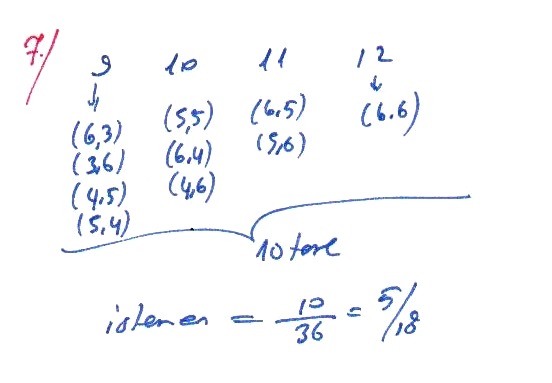 7./
9 10 11 12
↓ ↓
(6,3) (5,5) (6,5) (6.6)
(3,6) (6,4) (5,6)
(4,5) (4,6)
(5,4)
10 tane
istenen = 10/36 = 5/18